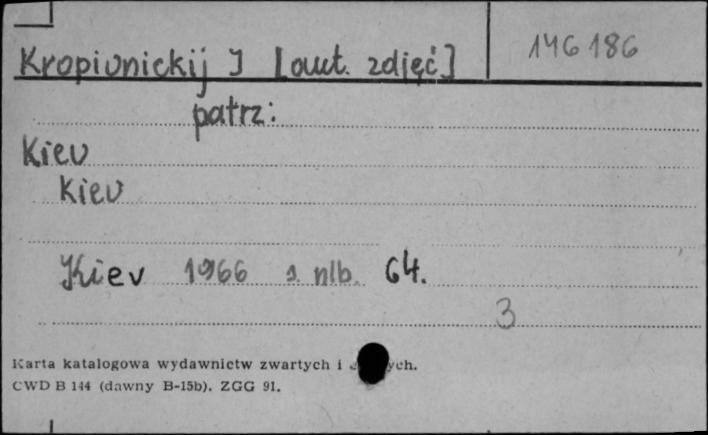 Kropivnickij J [aut. zdjęć]
146 186
patrz:
Kiev
Kiev
Kiev 1966 s. nlb. 64.
3
Karta katalogowa wydawnictw zwartych i
CWD B 144 (dawny B-15b). ZGG 91.